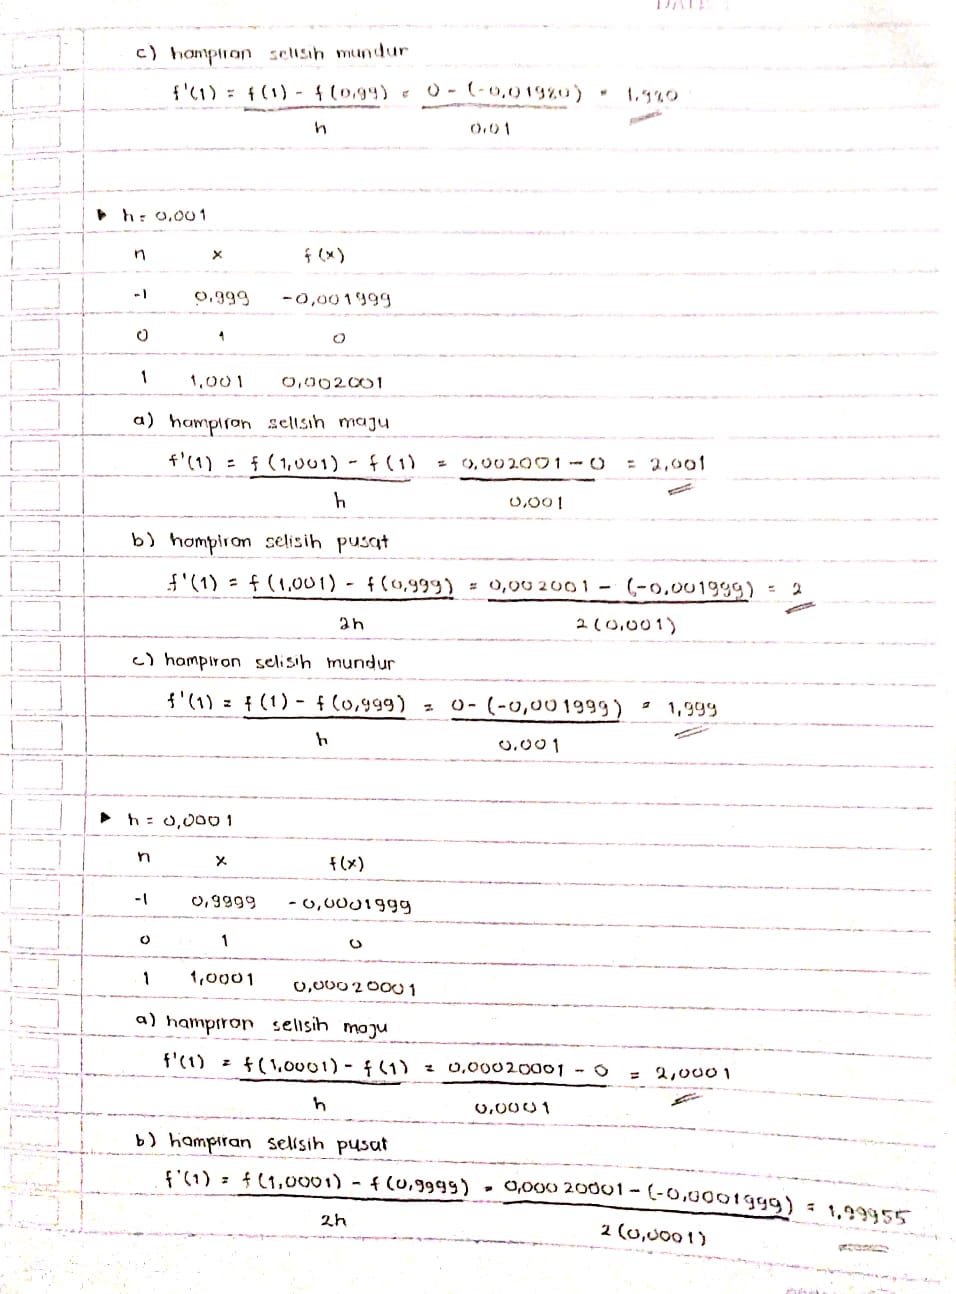 DATE
c) hampiran selisih mundur
f'(1) = f(1) - f(0,99) = 0 - (-0,01920) = 1,920
h 0,01
▶ h = 0,001
n x f(x)
-1 0,999 -0,001999
0 1 0
1 1,001 0,002001
a) hampiran selisih maju
f'(1) = f(1,001) - f(1) = 0,002001 - 0 = 2,001
h 0,001
b) hampiran selisih pusat
f'(1) = f(1,001) - f(0,999) = 0,002001 - (-0,001999) = 2
2h 2(0,001)
c) hampiran selisih mundur
f'(1) = f(1) - f(0,999) = 0 - (-0,001999) = 1,999
h 0,001
▶ h = 0,0001
n x f(x)
-1 0,9999 -0,0001999
0 1 0
1 1,0001 0,00020001
a) hampiran selisih maju
f'(1) = f(1,0001) - f(1) = 0,00020001 - 0 = 2,0001
h 0,0001
b) hampiran selisih pusat
f'(1) = f(1,0001) - f(0,9999) = 0,00020001 - (-0,0001999) = 1,99955
2h 2(0,0001)